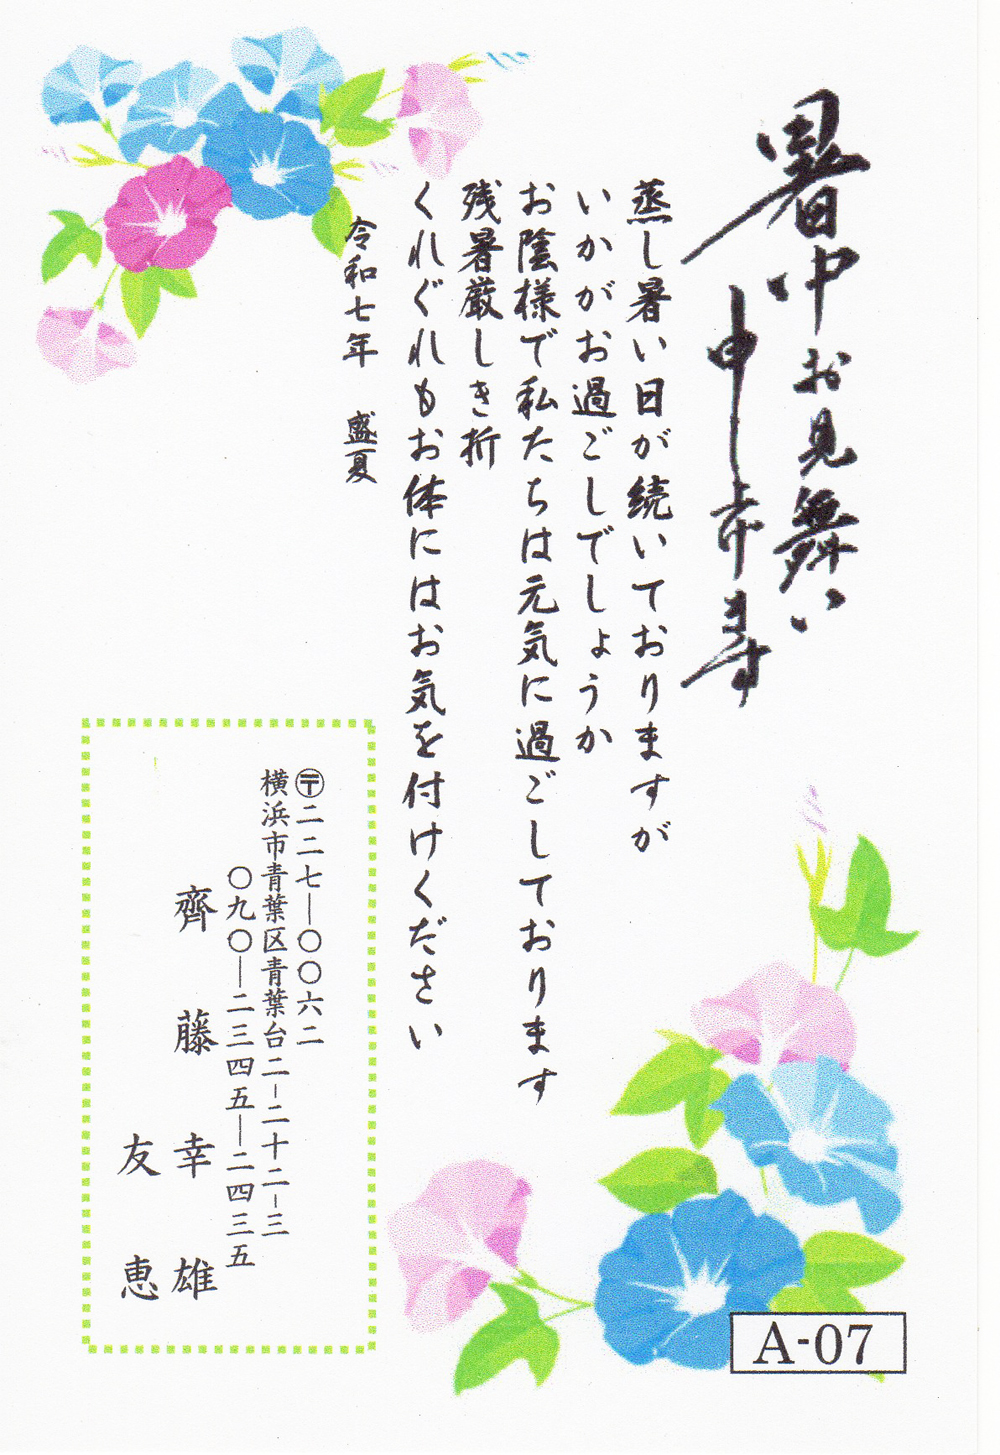 暑中お見舞い
申し上げます
蒸し暑い日が続いておりますが
いかがお過ごしでしょうか
お陰様で私たちは元気に過ごしております
残暑厳しき折
くれぐれもお体にはお気を付けください
令和七年 盛夏
〒二二七―〇〇六二
横浜市青葉区青葉台二－二十二－三
〇九〇―二三四五―二四三五
齊藤 幸雄
友恵
A-07